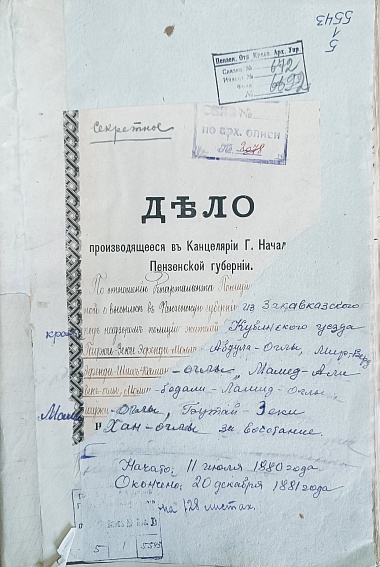 5
1
5543
Пензен. Отд. Краев. Арх. Упр.
Связка № 642
№ 6692
Секретное
Связ №
по арх. описи
№ 2078
ДѢЛО
производящееся въ Канцеляріи Г. Начал
Пензенской губерніи.
По отношению Департамента Полиции
о высылке в Пензенскую губернию из Закавказского
края под надзор полиции жителей Кубинского уезда
Эфенди Абдула-Оглы,
оглы, Мамед-Али
оглы,
Мамед оглы, Бутай Зеки
Хан-оглы за восстание.
Начато: 11 июля 1880 года
Окончено: 20 декабря 1881 года
на 128 листах.
5 1 5543